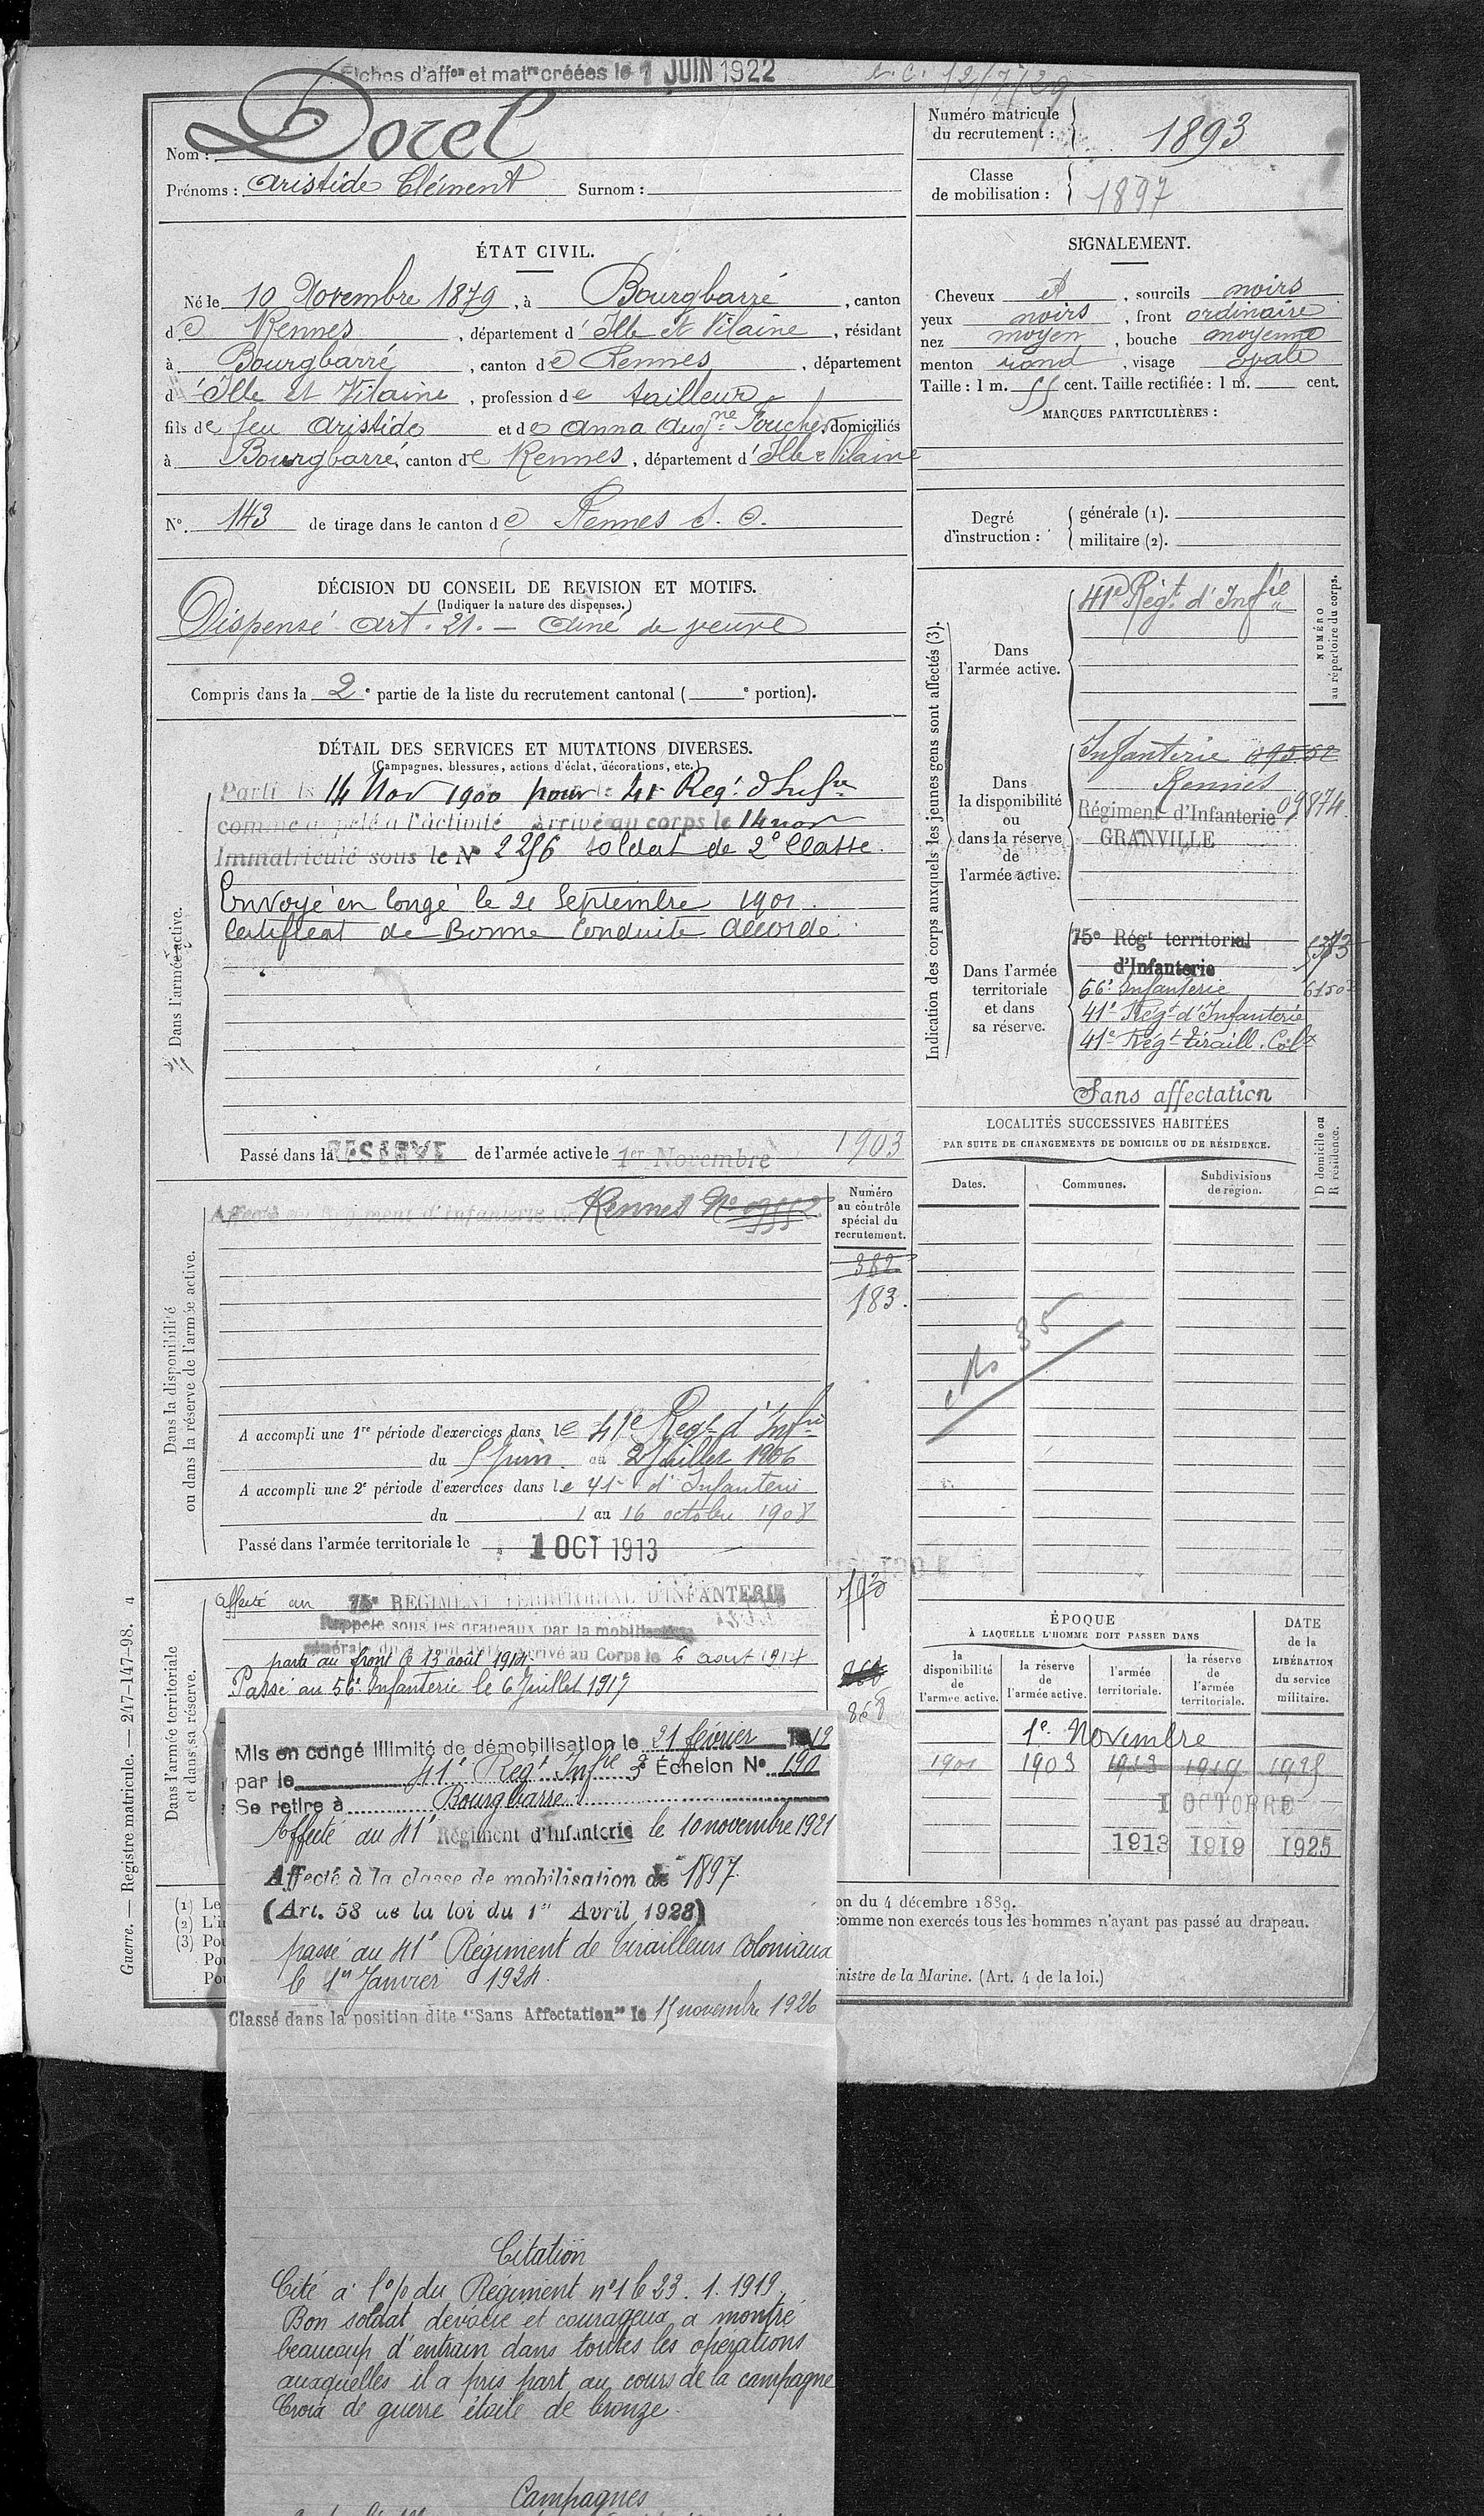 Fiches d'affon et matr créées le 1 JUIN 1922
C.C. 12/7/29
Nom : Dorel
Prénoms : Aristide Clément Surnom :
Numéro matricule
du recrutement : 1893
Classe
de mobilisation : 1897
ÉTAT CIVIL.
Né le 10 Novembre 1879, à Bourgbarré, canton
de Rennes, département d'Ille et Vilaine, résidant
à Bourgbarré, canton de Rennes, département
d'Ille et Vilaine, profession de tailleur
fils de feu Aristide et de Anna Augne Foucher, domiciliés
à Bourgbarré, canton de Rennes, département d'Ille & Vilaine
No. 143 de tirage dans le canton de Rennes S. O.
SIGNALEMENT.
Cheveux et, sourcils noirs
yeux noirs, front ordinaire
nez moyen, bouche moyenne
menton rond, visage ovale
Taille : 1 m. 55 cent. Taille rectifiée : 1 m. cent.
MARQUES PARTICULIÈRES :
Degré
d'instruction :
générale (1).
militaire (2).
DÉCISION DU CONSEIL DE REVISION ET MOTIFS.
(Indiquer la nature des dispenses.)
Dispensé art. 21. — aîné de veuve
Compris dans la 2e partie de la liste du recrutement cantonal ( e portion).
DÉTAIL DES SERVICES ET MUTATIONS DIVERSES.
(Campagnes, blessures, actions d'éclat, décorations, etc.)
Dans l'armée active.
Parti le 14 Nov 1900 pour le 41e Reg. d'Infie
comme appelé à l'activité Arrivé au corps le 14 nov
Immatriculé sous le No 2256 soldat de 2e Classe.
Envoyé en congé le 21 Septembre 1901.
Certificat de Bonne Conduite Accordé.
Passé dans la RÉSERVE de l'armée active le 1er Novembre 1903
Indication des corps auxquels les jeunes gens sont affectés (3).
NUMÉRO
au répertoire du corps.
Dans
l'armée active.
41e Régt d'Infie
Dans
la disponibilité
ou
dans la réserve
de
l'armée active.
Infanterie 09552
Rennes
Régiment d'Infanterie 09874.
GRANVILLE
Dans l'armée
territoriale
et dans
sa réserve.
75e Régt territorial
d'Infanterie
56e Infanterie
41e Régt d'Infanterie
41e Régt tiraill. Colx
Sans affectation
LOCALITÉS SUCCESSIVES HABITÉES
PAR SUITE DE CHANGEMENTS DE DOMICILE OU DE RÉSIDENCE.
Dates.
Communes.
Subdivisions
de région.
D domicile ou
R résidence.
Dans la disponibilité
ou dans la réserve de l'armée active.
Affecté au Régiment d'Infanterie de Rennes No 09552
Numéro
au contrôle
spécial du
recrutement.
382
183.
A accompli une 1re période d'exercices dans le 41e Regt d'Infie
du 5 Juin au 2 Juillet 1906
A accompli une 2e période d'exercices dans le 41e d'Infanterie
du 1 au 16 octobre 1908
Passé dans l'armée territoriale le 1 OCT 1913
Dans l'armée territoriale
et dans sa réserve.
affecté au 75e RÉGIMENT TERRITORIAL D'INFANTERIE
Rappelé sous les drapeaux par la mobilisation
générale du 2 août 1914 Arrivé au Corps le 6 août 1914
parti au front le 13 août 1914.
Passé au 56e Infanterie le 6 Juillet 1917
868
Mis en congé illimité de démobilisation le 21 février 1919
par le 41e Regt Infie 3e Échelon No 190
Se retire à Bourgbarré
Affecté au 41e Régiment d'Infanterie le 10 novembre 1921
Affecté à la classe de mobilisation de 1897.
(Art. 58 de la loi du 1er Avril 1923)
passé au 41e Régiment de tirailleurs coloniaux
le 1er Janvier 1924.
Classé dans la position dite "Sans Affectation" le 15 novembre 1926
ÉPOQUE
À LAQUELLE L'HOMME DOIT PASSER DANS
la
disponibilité
de
l'armée active.
la réserve
de
l'armée active.
l'armée
territoriale.
la réserve
de
l'armée
territoriale.
DATE
de la
LIBÉRATION
du service
militaire.
1er Novembre
1901 1903 1913 1919 1925
1 OCTOBRE
1913 1919 1925
(1) Le
(2) L'i
(3) Pou
Pou
Pou
on du 4 décembre 1889.
comme non exercés tous les hommes n'ayant pas passé au drapeau.
inistre de la Marine. (Art. 4 de la loi.)
Guerre. — Registre matricule. — 247-147-98. 4
Citation
Cité à l'o/o du Régiment no 1 le 23. 1. 1919.
Bon soldat dévoué et courageux a montré
beaucoup d'entrain dans toutes les opérations
auxquelles il a pris part au cours de la campagne
Croix de guerre étoile de bronze.
Campagnes